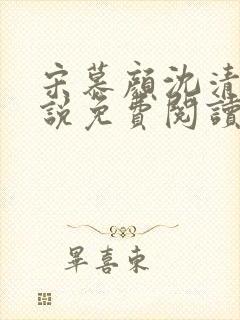 宋慕顏沈清
說免費閱讀
畢喜東